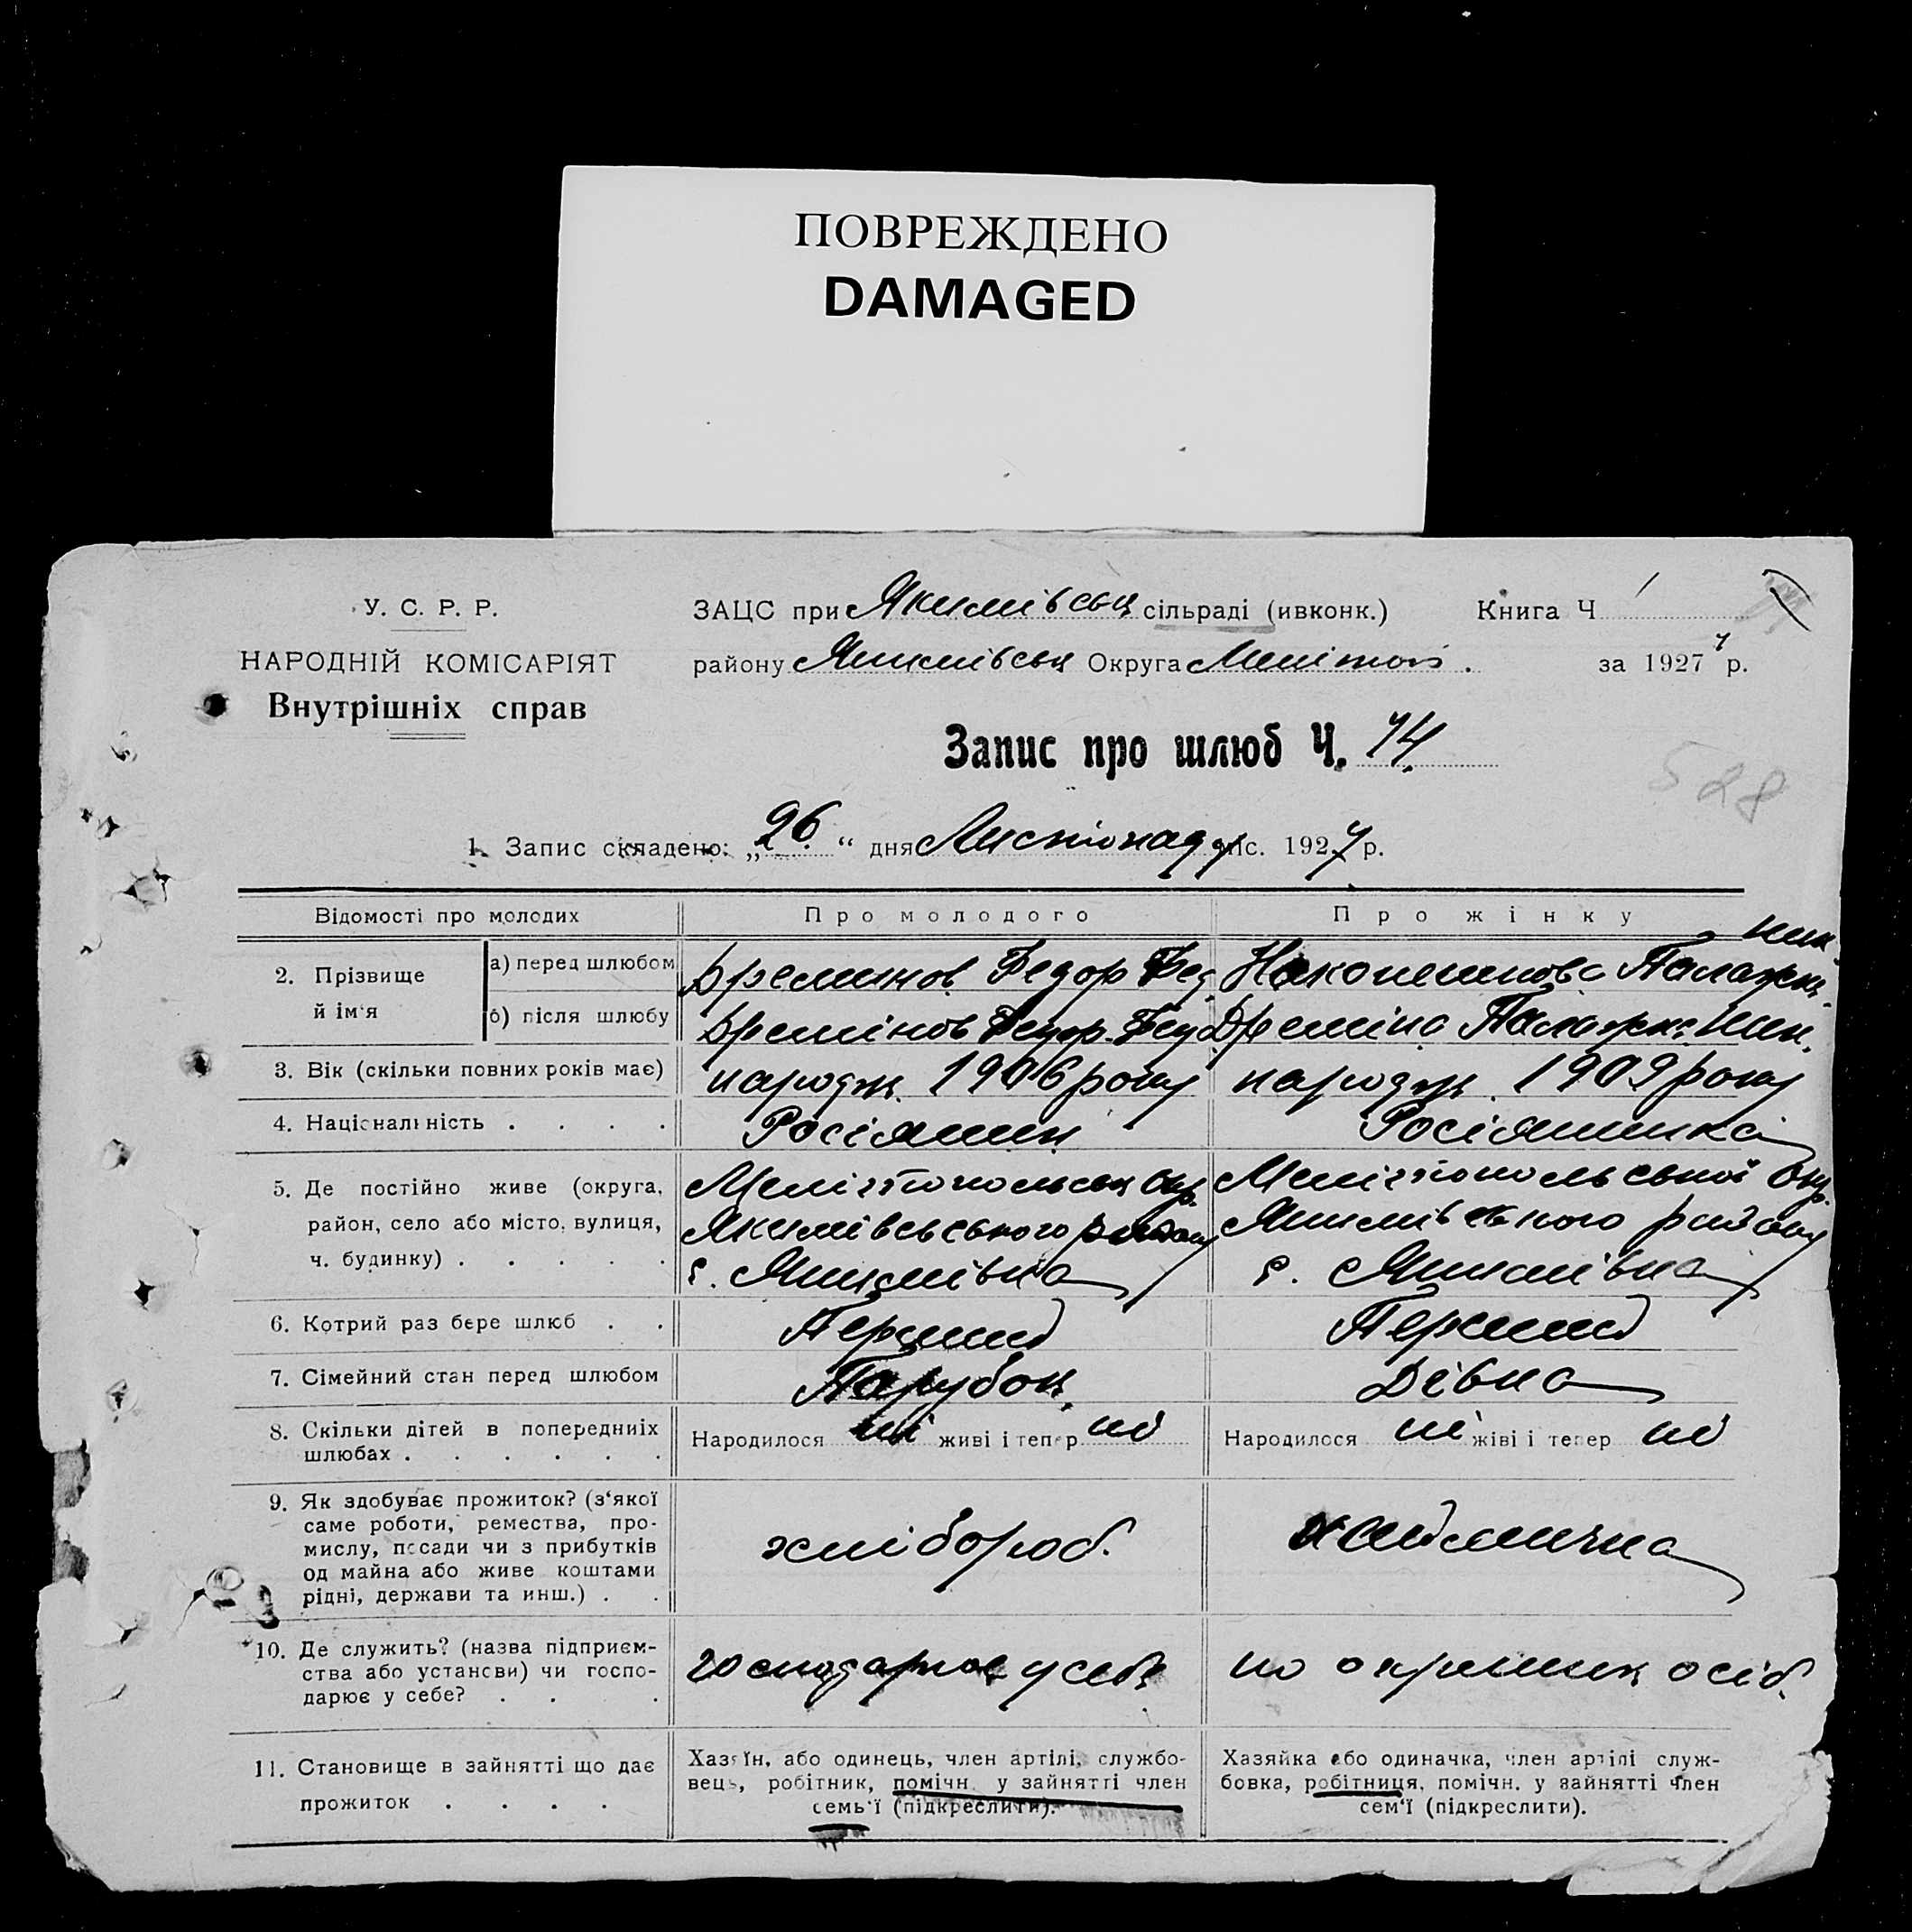 ПОВРЕЖДЕНО
DAMAGED
У. С. Р. Р.
НАРОДНІЙ КОМІСАРІЯТ
Внутрішніх справ
ЗАЦС при Якимівськ сільраді (ивконк.) Книга Ч 1
району Якимівськ Округа Меліт за 1927 7 р.
Запис про шлюб Ч. 74.
528
1. Запис складено: „26.“ дня Листопаду міс. 1927 р.
Відомості про молодих Про молодого Про жінку
2. Прізвище й ім'я
а) перед шлюбом Федор Фед. Палажк. Ник.
б) після шлюбу Дремінов Федор Фед Дреміно Палажк. Ник.
3. Вік (скільки повних років має) народж. 1906 року народж. 1909 року
4. Національність . . . . Росіянин Росіяшика
5. Де постійно живе (округа, Мелітопольськ Окр. Мелітопольської Окр.
район, село або місто, вулиця, Якимівського району Якимівського району
ч. будинку) . . . . . с. Якимівка с. Якимівка
6. Котрий раз бере шлюб . . Перший Перший
7. Сімейний стан перед шлюбом Парубок. Дівка
8. Скільки дітей в попередниіх Народилося ні живі і тепер ні Народилося ні жіві і тепер ні
шлюбах . . . . . .
9. Як здобуває прожиток? (з'якої
саме роботи, ремества, про-
мислу, посади чи з прибутків хлібороб. наймичка
од майна або живе коштами
рідні, держави та инш.) . .
10. Де служить? (назва підприєм-
ства або установи) чи госпо- господарює у себе по окремих осіб.
дарює у себе? . . .
11. Становище в зайнятті що дає Хазяїн, або одинець, член артілі, службо- Хазяйка або одиначка, член артілі служ-
прожиток . . . . вець, робітник, помічн. у зайнятті член бовка, робітниця, помічн. у зайнятті член
семь'ї (підкреслити). сем'ї (підкреслити).